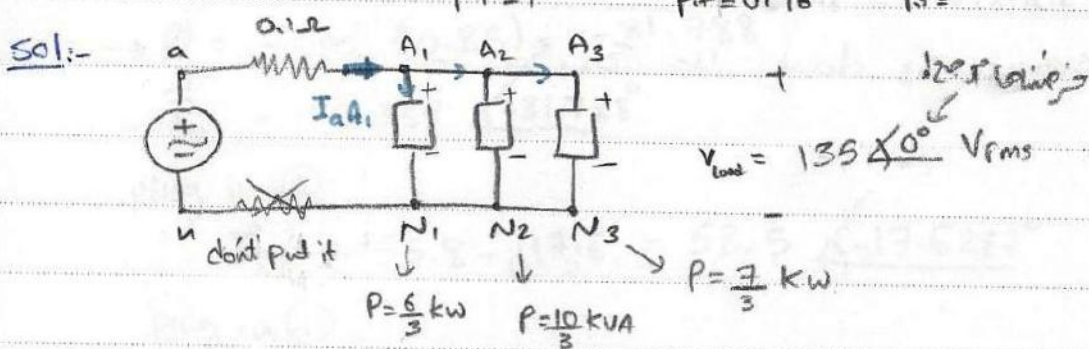 sol:-
a 0.1Ω A₁ A₂ A₃
I_aA₁
+ - + - + -
+
V_load = 135 ∡0° Vrms
-
n N₁ N₂ N₃
don't put it
P=6/3 kW P=10/3 KVA P=7/3 KW